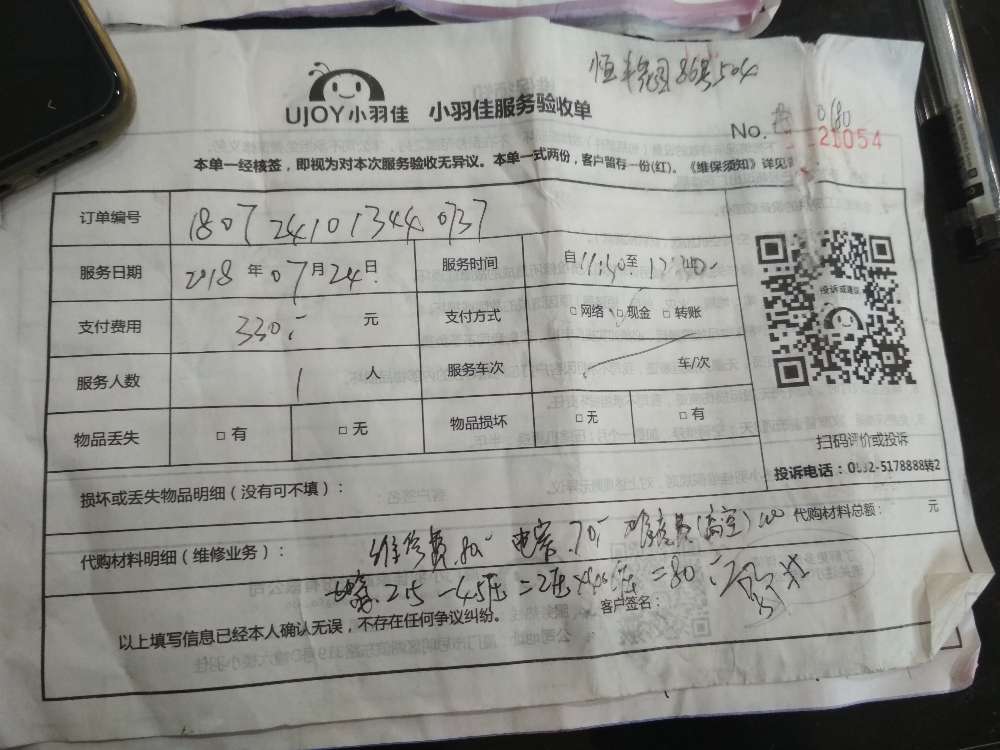 恒丰花园86号504
UJOY小羽佳 小羽佳服务验收单
No. 21054
0180
本单一经核签，即视为对本次服务验收无异议。本单一式两份，客户留存一份(红)。《维保须知》详见
订单编号 1807241013440737
服务日期 2018年07月24日 服务时间 自11:30至12:40
支付费用 330 元 支付方式 □网络 □现金 □转账
投诉或建议
服务人数 1 人 服务车次 车/次
物品丢失 □有 □无 物品损坏 □无 □有
扫码评价或投诉
投诉电话：0592-5178888转2
损坏或丢失物品明细（没有可不填）：
代购材料明细（维修业务）： 维修费.80 电容.70 难度费(高空)100 代购材料总额： 元
2.5-4.5压=2压×40压=80
客户签名：
以上填写信息已经本人确认无误，不存在任何争议纠纷。